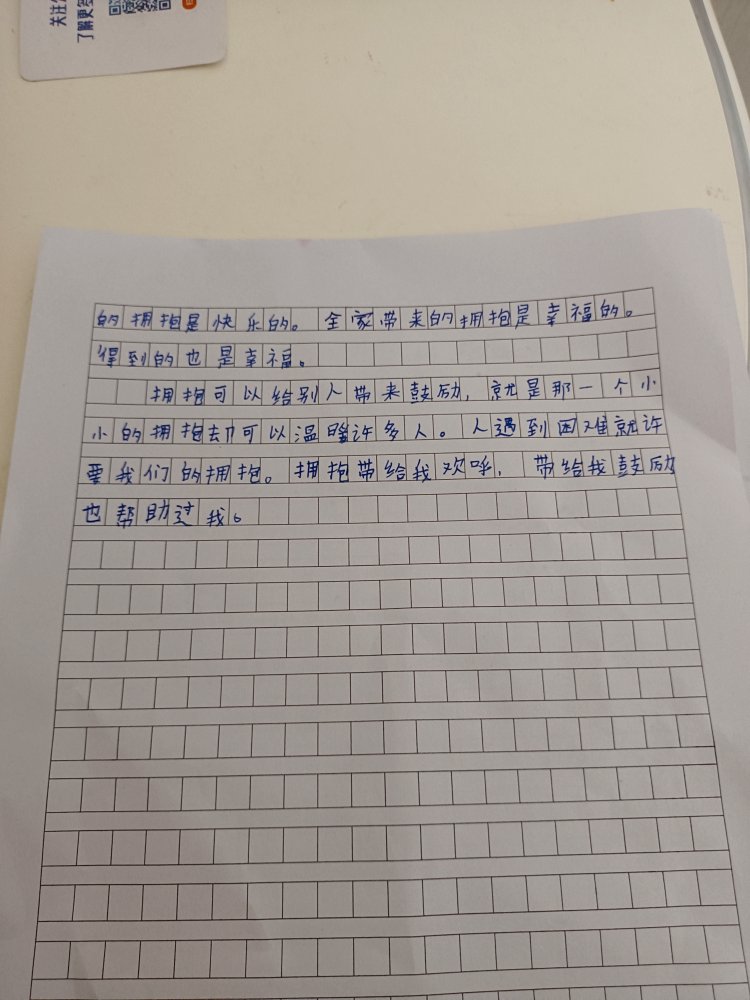 关注
了解更多
的拥抱是快乐的。全家带来的拥抱是幸福的。
得到的也是幸福。
拥抱可以给别人带来鼓励，就是那一个小
小的拥抱却可以温暖许多人。人遇到困难就许
要我们的拥抱。拥抱带给我欢呼，带给我鼓励
也帮助过我。